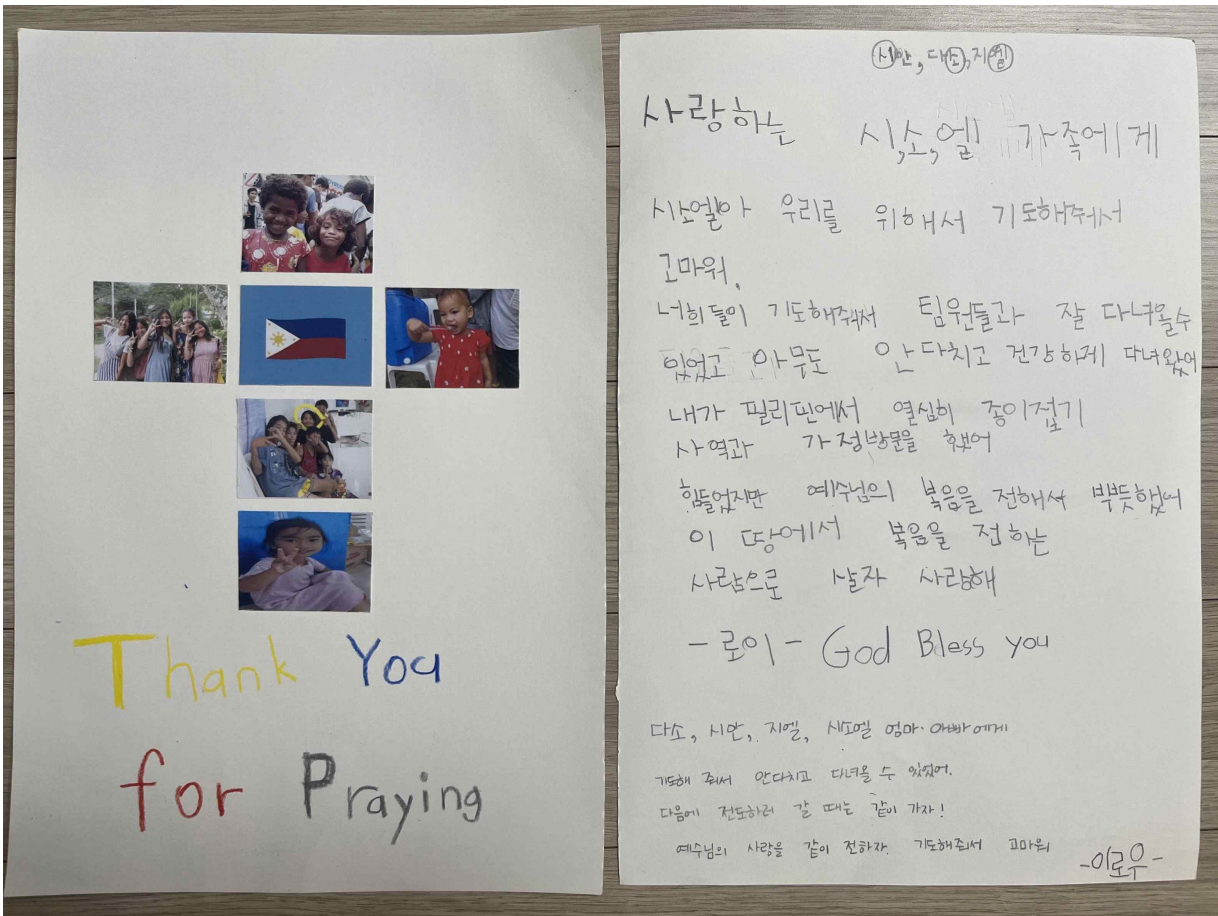 Thank You
for Praying
시안, 다소, 지엘
사랑하는 시,소,엘 가족에게
시소엘아 우리를 위해서 기도해줘서
고마워.
너희들이 기도해줘서 팀원들과 잘 다녀올수
있었고 아무도 안 다치고 건강하게 다녀왔어
내가 필리핀에서 열심히 종이접기
사역과 가정방문을 했어
힘들었지만 예수님의 복음을 전해서 뿌듯했어
이 땅에서 복음을 전하는
사람으로 살자 사랑해
- 로이 - God Bless you
다소, 시안, 지엘, 시소엘 엄마·아빠에게
기도해 줘서 안다치고 다녀올 수 있었어.
다음에 전도하러 갈 때는 같이 가자!
예수님의 사랑을 같이 전하자. 기도해줘서 고마워
-이로우-